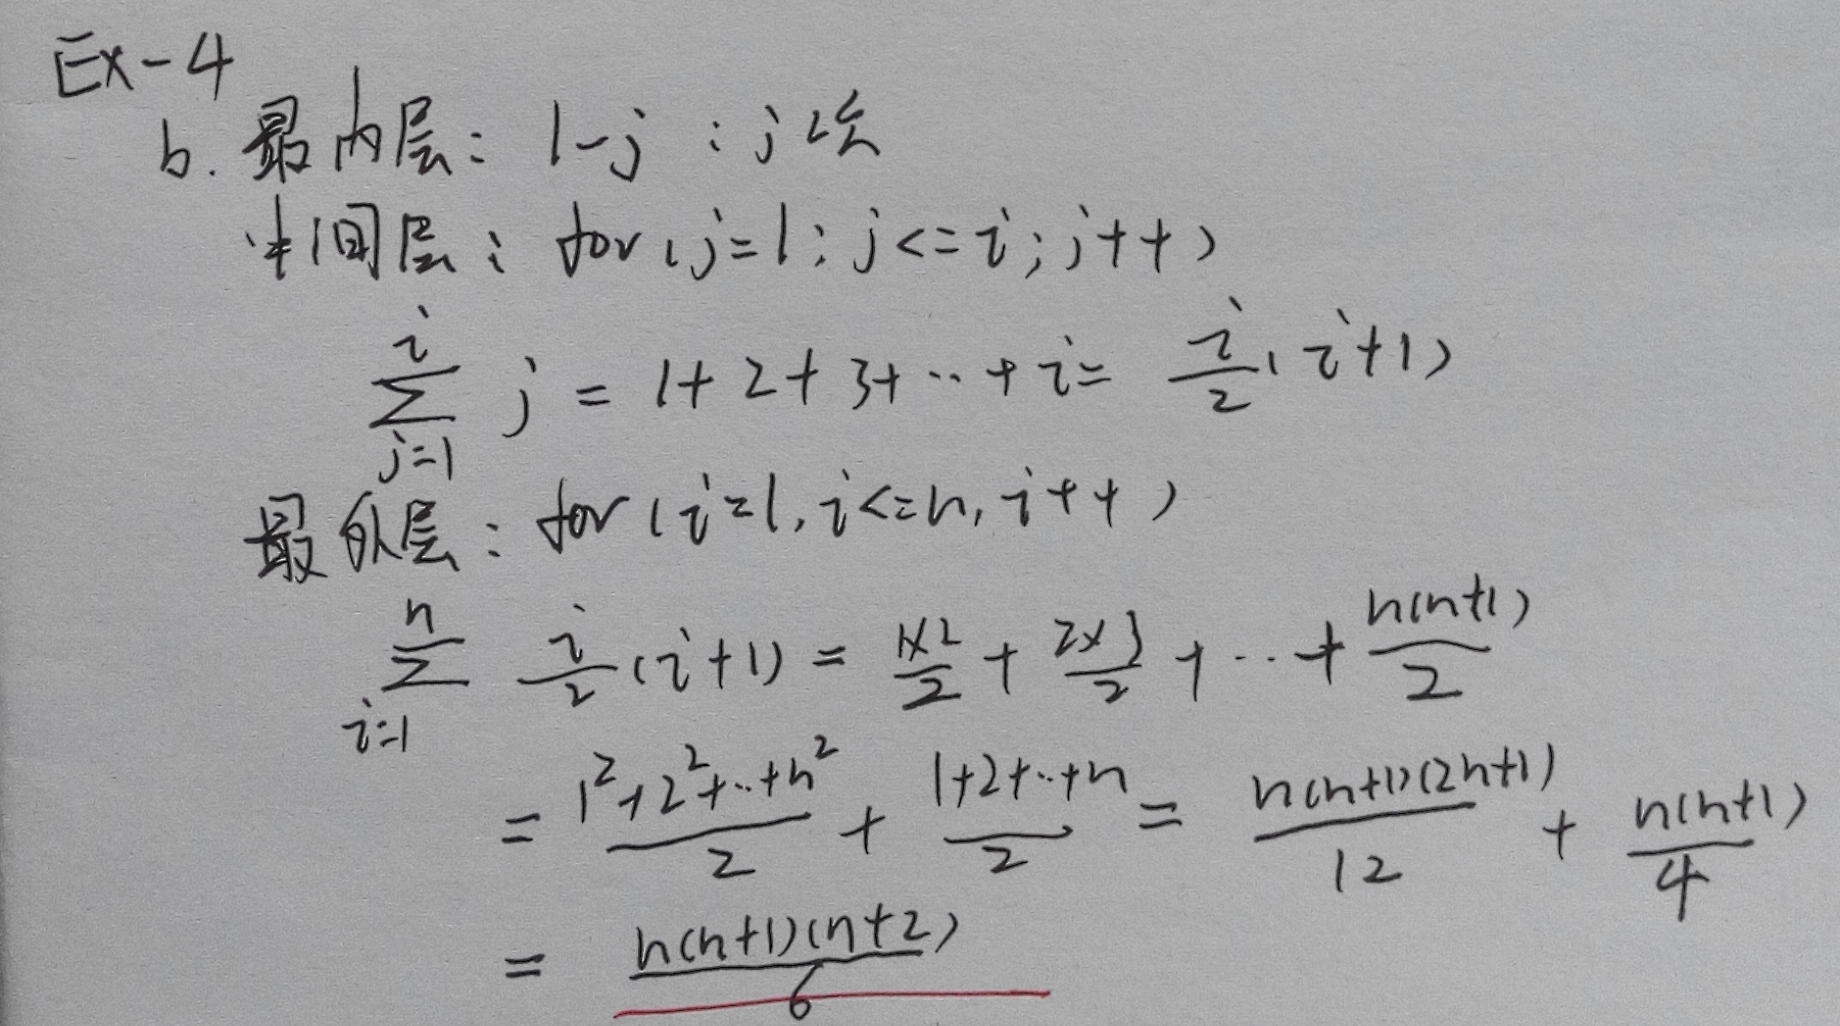 Ex-4
b. 最内层: 1-j : j次
中间层: for (j=1; j<=i; j++)
∑_{j=1}^{i} j = 1+2+3+··+i = i/2 (i+1)
最外层: for (i=1, i<=n, i++)
∑_{i=1}^{n} i/2 (i+1) = 1×2/2 + 2×3/2 + ··+ n(n+1)/2
= (1²+2²+··+n²)/2 + (1+2+··+n)/2 = n(n+1)(2n+1)/12 + n(n+1)/4
= n(n+1)(n+2)/6